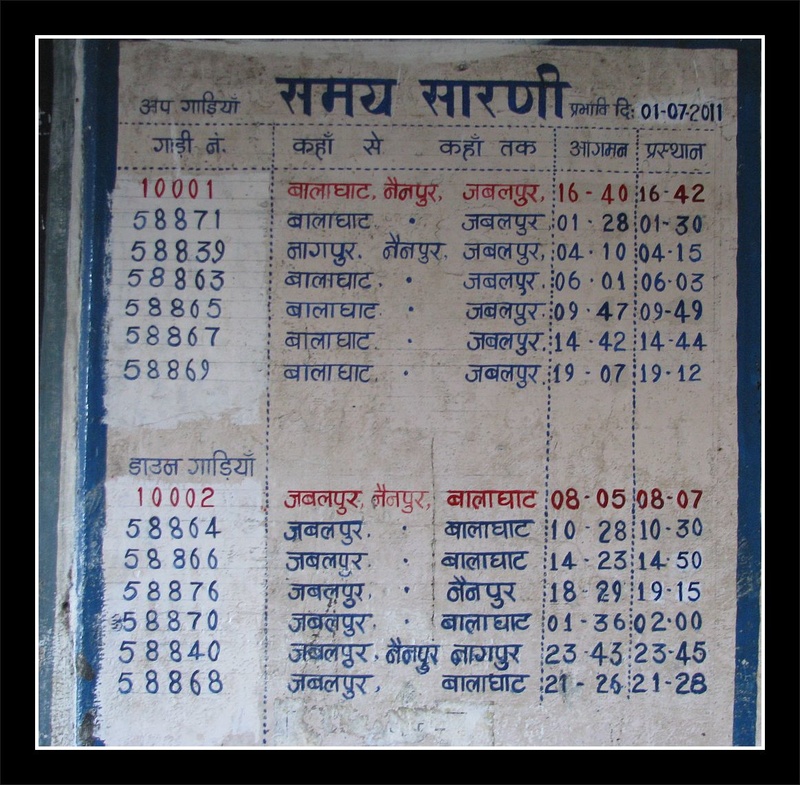 समय सारणी
अप गाड़ियाँ प्रभावि दि: 01-07-2011
गाड़ी नं. कहाँ से कहाँ तक आगमन प्रस्थान
10001 बालाघाट, नैनपुर, जबलपुर, 16-40 16-42
58871 बालाघाट • जबलपुर, 01-28 01-30
58839 नागपुर. नैनपुर. जबलपुर, 04-10 04-15
58863 बालाघाट. • जबलपुर, 06-01 06-03
58865 बालाघाट. • जबलपुर. 09-47 09-49
58867 बालाघाट. • जबलपुर. 14-42 14-44
58869 बालाघाट. • जबलपुर. 19-07 19-12
डाउन गाड़ियाँ
10002 जबलपुर, नैनपुर, बालाघाट 08-05 08-07
58864 जबलपुर. • बालाघाट 10-28 10-30
58866 जबलपुर. • बालाघाट 14-23 14-50
58876 जबलपुर. • नैनपुर 18-29 19-15
58870 जबलपुर. • बालाघाट 01-36 02-00
58840 जबलपुर. नैनपुर नागपुर 23-43 23-45
58868 जबलपुर, बालाघाट 21-26 21-28